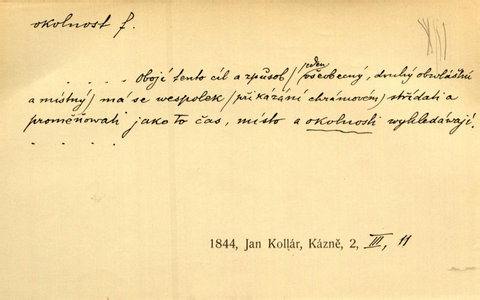 okolnost f.
. . . . . Obojí tento cíl a způsob / jeden všeobecný, druhý obzvláštní
a místný / má se wespolek / při kázání chrámovém / střídati a
proměňowati jako to čas, místo a okolnosti wyhledáwají.
. . . . .
1844, Jan Kollár, Kázně, 2, III, 11